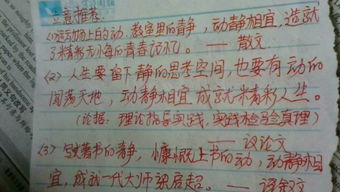 立意推荐:
(1) 运动场上的动,教室里的静,动静相宜,造就
了精彩无悔的青春记忆。—— 散文
(2) 人生要留下静的思考空间,也要有动的
闯荡天地,动静相宜成就精彩人生。
(论据:理论指导实践,实践检验真理)
—— 议论文
(3) 写书的静,慷慨上书的动,动静相
宜,成就一代大师梁启超。—— 记叙文